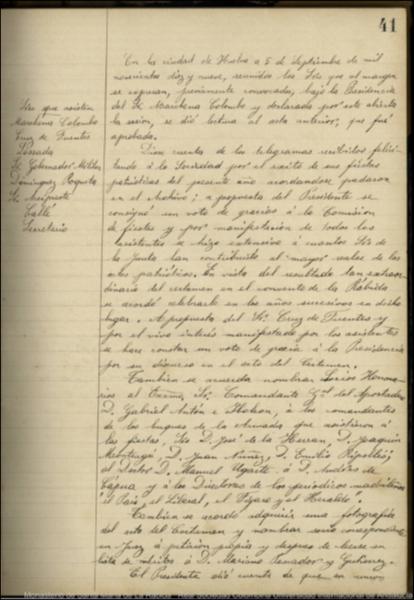 41
En la ciudad de Huelva a 5 de Septiembre de mil
novecientos diez y nueve, reunidos los Sres que al margen
se expresan, previamente convocados, bajo la Presidencia
del Sr Marchena Colombo y declarada por este abierta
la sesion, se dió lectura al acta anterior, que fué
aprobada.
Sres que asisten
Marchena Colombo
Cruz de Fuentes
Losada
Sr Gobernador Militar
Dominguez Roqueta
Sr Arcipreste
Calle
Secretario
Dióse cuenta de los telegramas recibidos felici-
tando á la Sociedad por el exito de sus fiestas
patrióticas del presente año acordandose pasaran
en el Archivo; a propuesta del Presidente se
consignó un voto de gracias á la Comision
de fiestas y por manifestacion de todos los
asistentes se hizo extensivo á cuantos Sres de
la Junta han contribuido al mayor realce de los
actos patrióticos. En vista del resultado tan extraor-
dinario del certamen en el convento de la Rábida
se acordó celebrarlo en los años sucesivos en dicho
lugar. A propuesta del Sr. Cruz de Fuentes y
por el vivo interés manifestado por los asistentes
se hace constar un voto de gracia á la Presidencia
por su discurso en el acto del Certamen.
Tambien se acuerda nombrar Socios Honora-
rios al Excmo Sr. Comandante Gral del Apostadero
D. Gabriel Antón é, á los comandantes
de los buques de la Armada que asistieron á
las fiestas, Sres D. José de la Herran, D. Joaquin
D. Juan Nuñez, D. Emilio
al Doctor D. Manuel Ugarte á D. Andrés de
y á los Directores de los periodicos madrileños
"el Pais, el Liberal, el Figaro y el Heraldo".
Tambien se acordó adquirir una fotografia
del acto del Certamen y nombrar socio correspondiente
en á peticion propia y despues de
lista de méritos á D. Mariano y Gutierrez.
El Presidente dió cuenta de que en